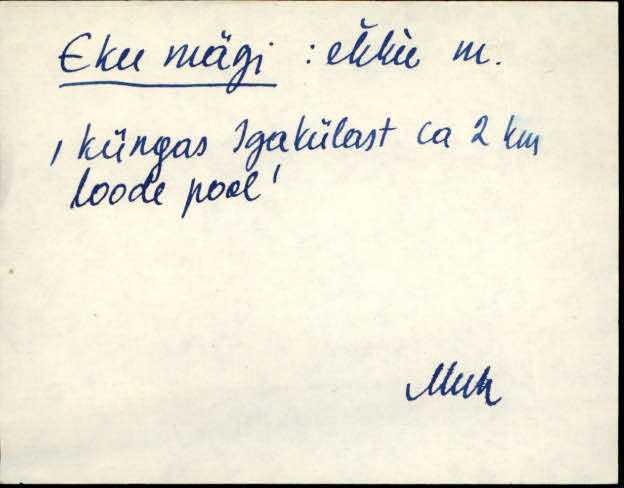 Eku mägi : èkkù m.
, küngas Igakülast ca 2 km
loode pool '
Muh